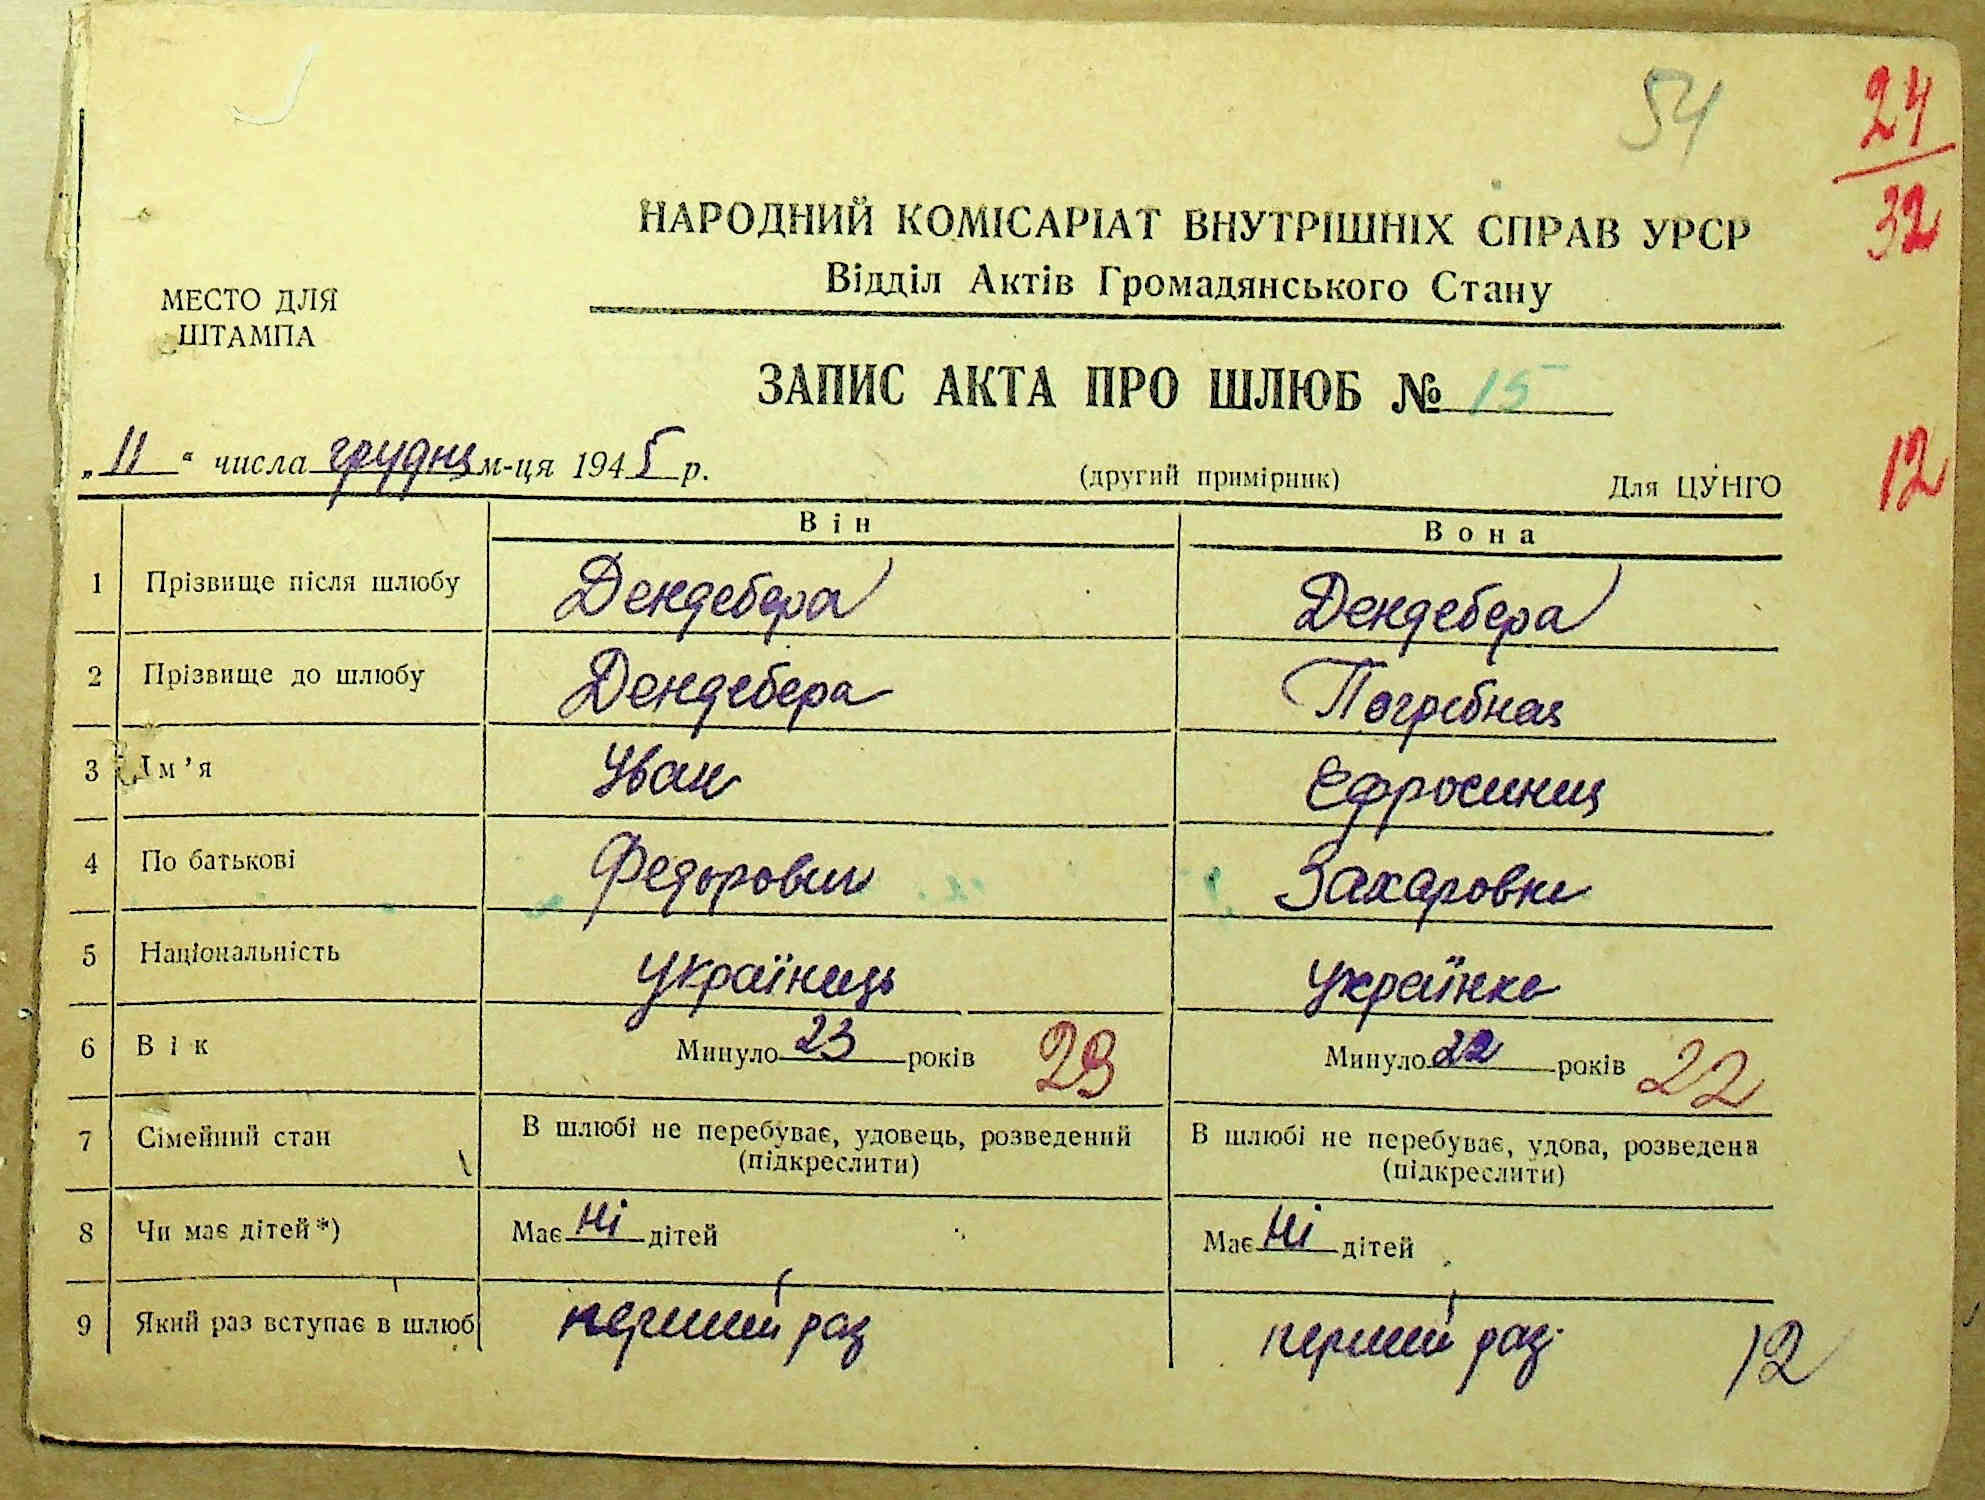 54
24
32
НАРОДНИЙ КОМІСАРІАТ ВНУТРІШНІХ СПРАВ УРСР
Відділ Актів Громадянського Стану
МЕСТО ДЛЯ
ШТАМПА
ЗАПИС АКТА ПРО ШЛЮБ № 15
„11“ числа грудня м-ця 1945 р.
(другий примірник)
Для ЦУНГО
12
Він Вона
1 Прізвище після шлюбу Дендебера Дендебера
2 Прізвище до шлюбу Дендебера Погребная
3 Ім'я Иван Ефросиния
4 По батькові Федорович Захаровна
5 Національність Українець Українка
6 Вік Минуло 23 років 23 Минуло 22 років 22
7 Сімейний стан В шлюбі не перебуває, удовець, розведений (підкреслити) В шлюбі не перебуває, удова, розведена (підкреслити)
8 Чи має дітей*) Має Ні дітей Має Ні дітей
9 Який раз вступає в шлюб перший раз перший раз
12